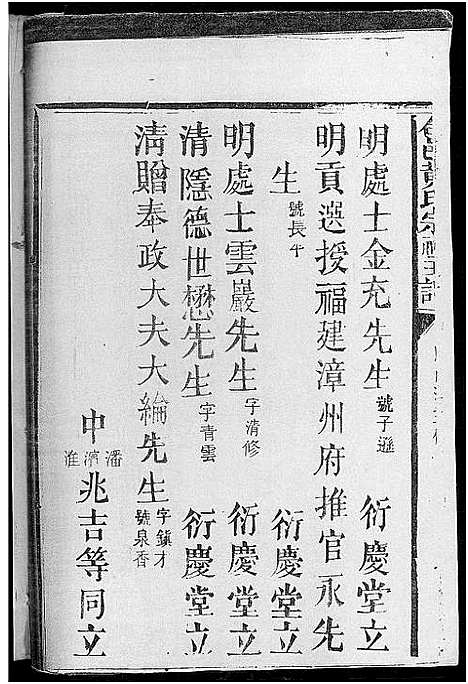 明處士金充先生號子遜　衍慶堂立
明貢選授福建漳州府推官永先
生號長平　衍慶堂立
明處士雲巖先生字清修　衍慶堂立
清隱德世懋先生字青雲　衍慶堂立
清贈奉政大夫大綸先生字鎮才號泉香
中潘濱淮兆吉等同立